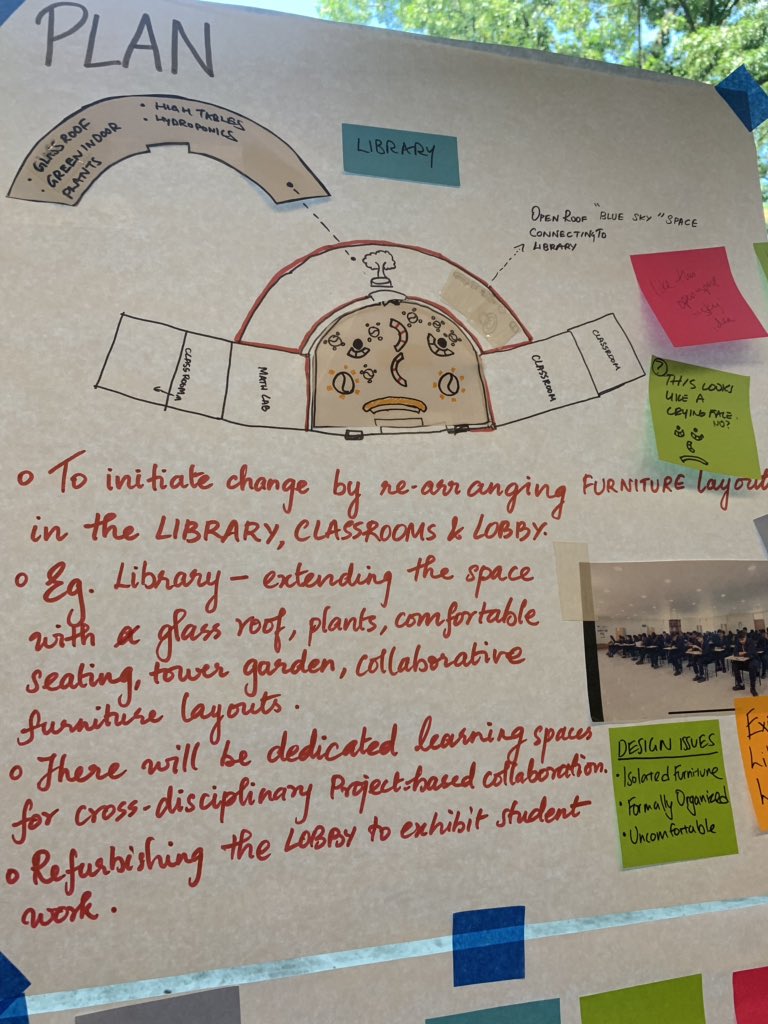 PLAN
• GLASS ROOF
• GREEN INDOOR
PLANTS
• HIGH TABLES
• HYDROPONICS
LIBRARY
OPEN ROOF "BLUE SKY" SPACE
CONNECTING TO
LIBRARY
CLASSROOM
MATH LAB
CLASSROOM
CLASSROOM
THIS LOOKS
LIKE A
CRYING FACE.
NO?
o To initiate change by re-arranging FURNITURE layout
in the LIBRARY, CLASSROOMS & LOBBY.
o Eg. Library – extending the space
with a glass roof, plants, comfortable
seating, tower garden, collaborative
furniture layouts.
o There will be dedicated learning spaces
for cross-disciplinary Project-based collaboration.
o Refurbishing the LOBBY to exhibit student
work.
DESIGN ISSUES
• Isolated Furniture
• Formally Organized
• Uncomfortable